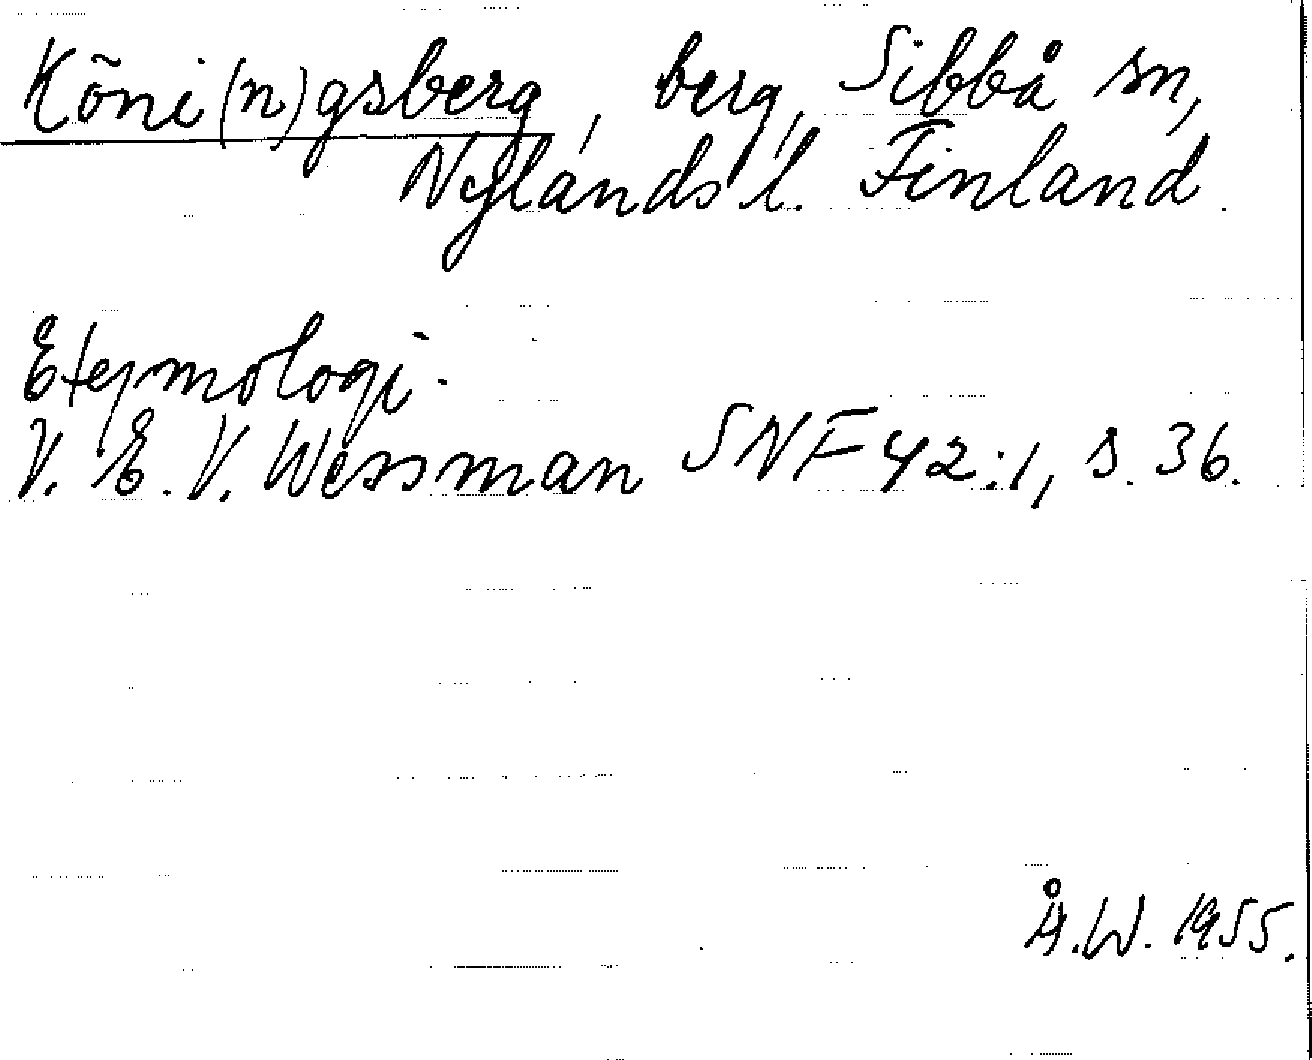 Köni(n)gsberg, berg, Sibbå sn,
Nylands l. Finland.
Etymologi.
V. E. V. Wessman SNF 42:1, s. 36.
Å.W. 1955.